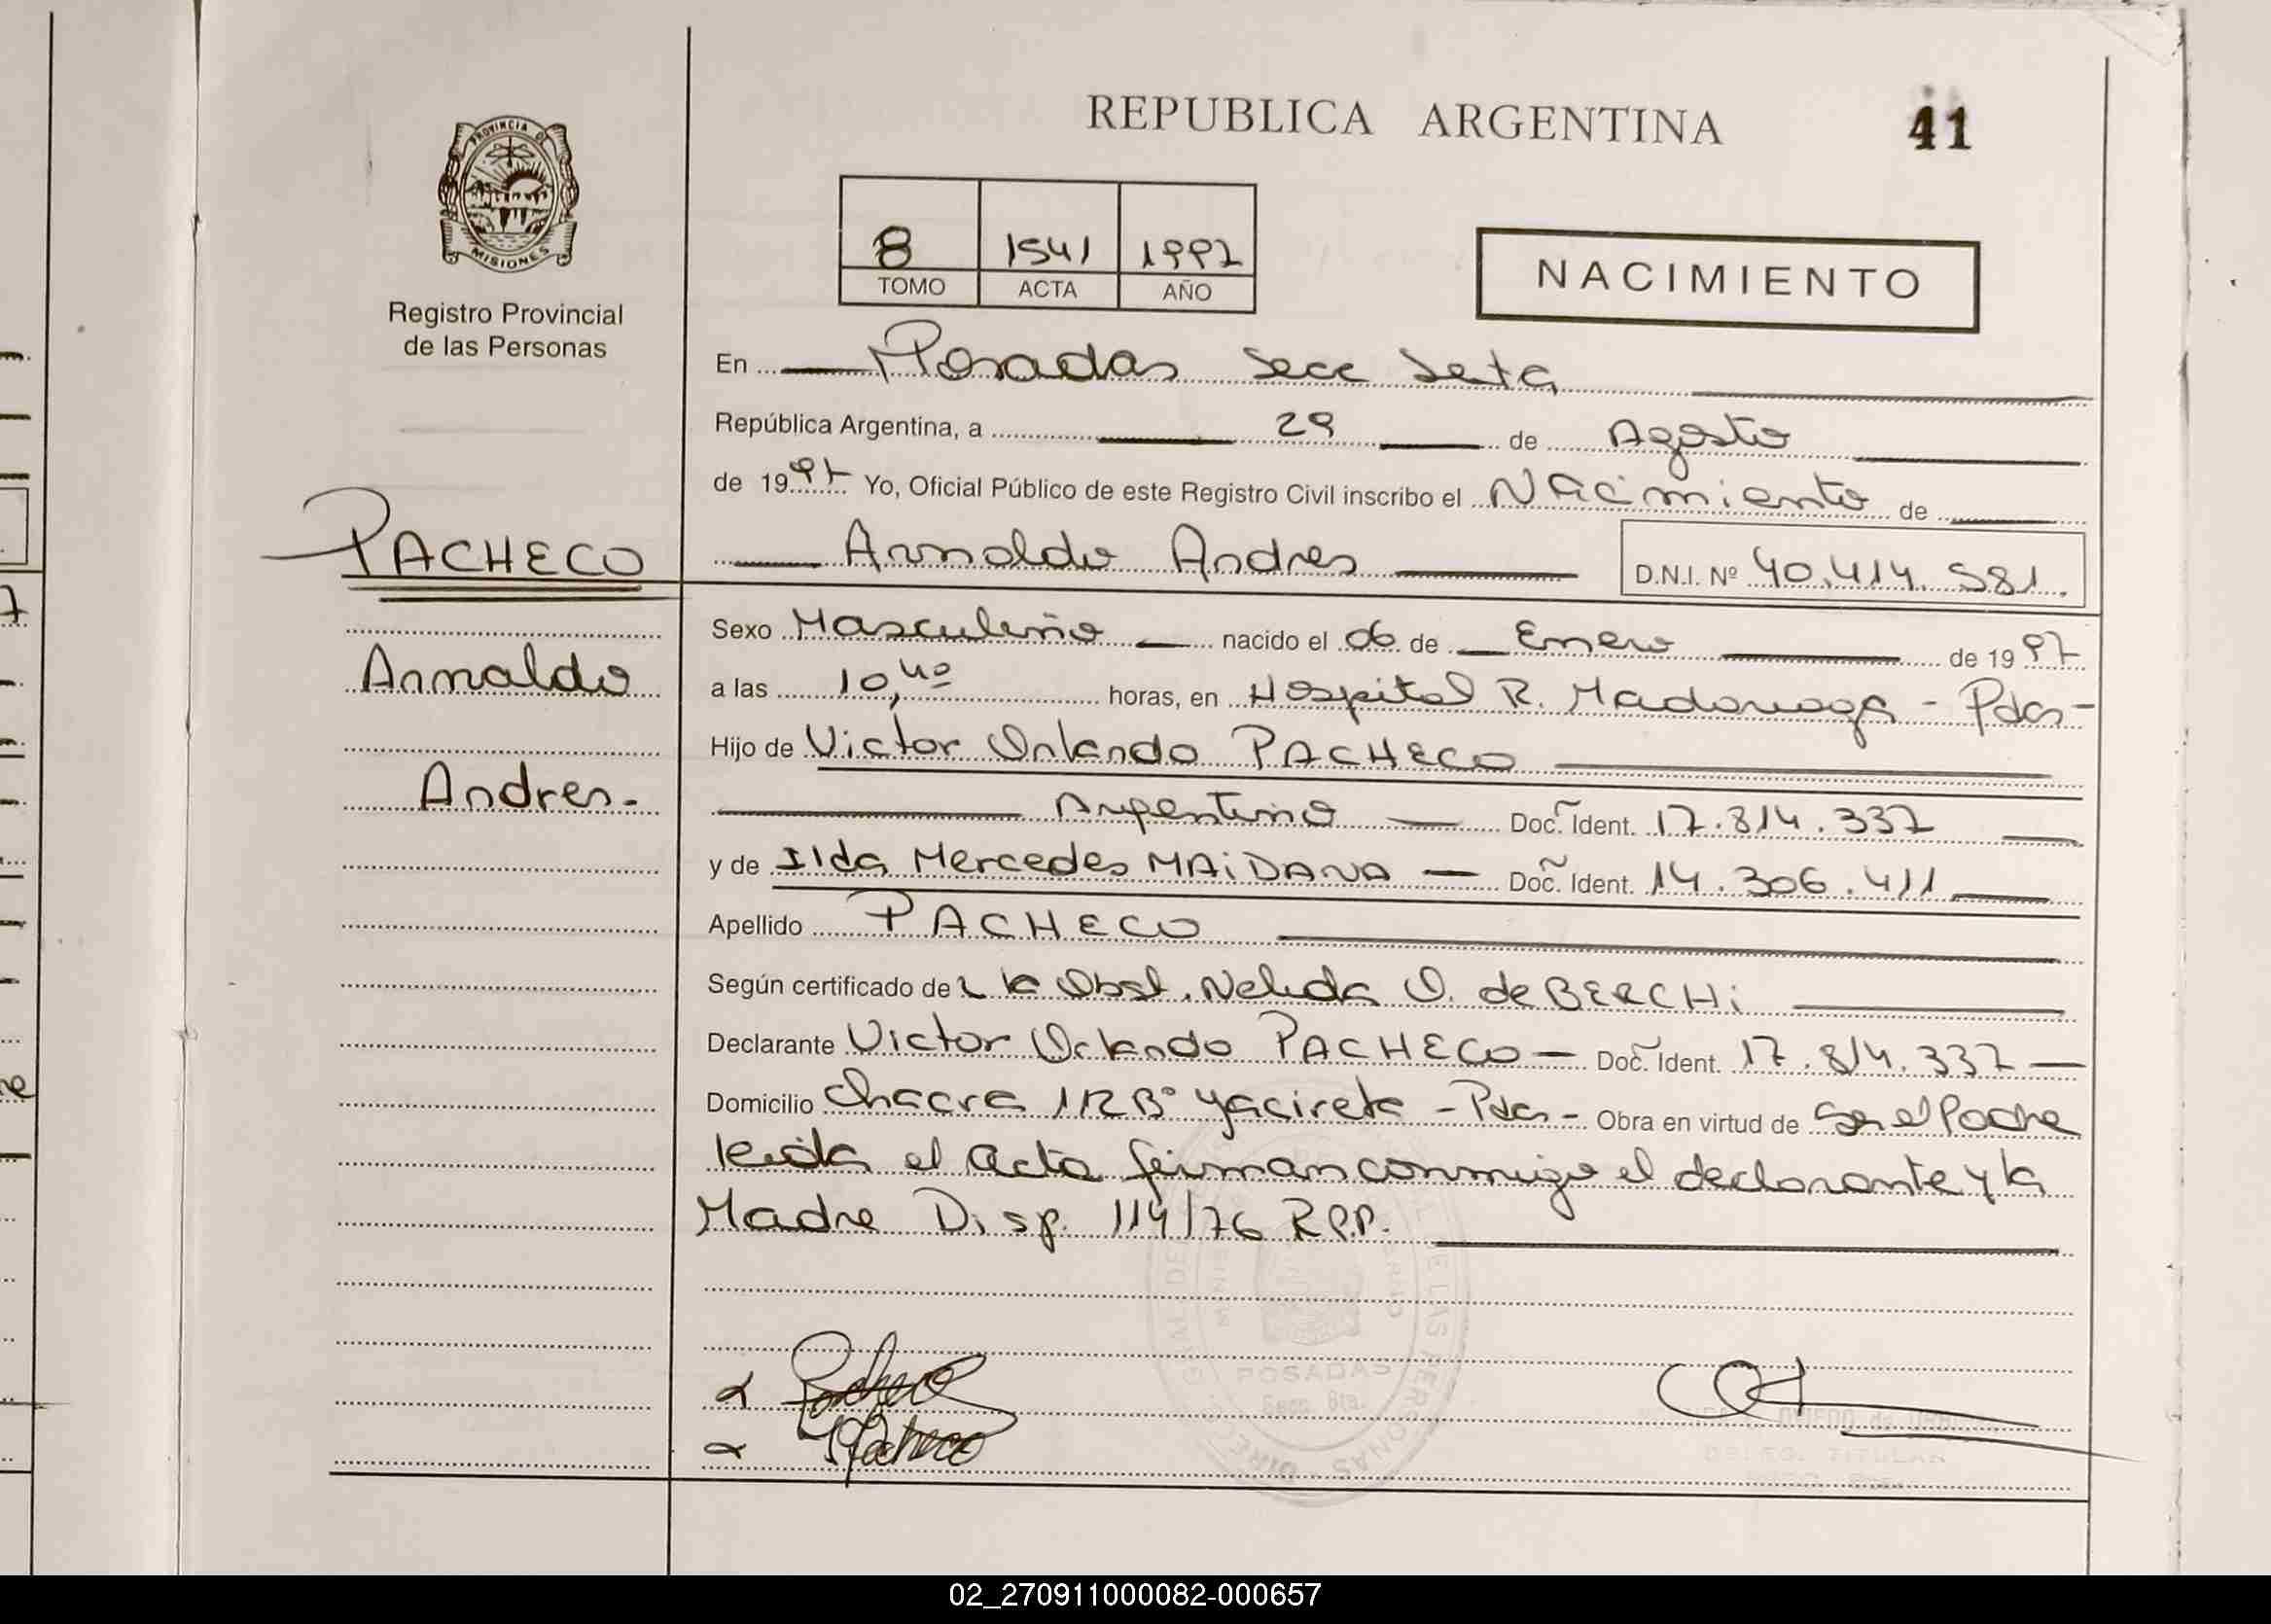 REPUBLICA ARGENTINA
41
PROVINCIA DE
MISIONES
Registro Provincial
de las Personas
8 1541 1997
TOMO ACTA AÑO
NACIMIENTO
En Posadas Secc Sexta
República Argentina, a 29 de Agosto
de 1997 Yo, Oficial Público de este Registro Civil inscribo el Nacimiento de
PACHECO
Arnaldo Andres D.N.I. Nº 40.414.581.
Sexo Masculino nacido el 06 de Enero de 1997
Arnaldo
a las 10,40 horas, en Hospital R. Madariaga - Pdas-
Hijo de Victor Orlando PACHECO
Andres-
Argentino Doc. Ident. 17.814.337
y de Ilda Mercedes MAIDANA Doc. Ident. 14.306.411
Apellido PACHECO
Según certificado de la Obst. Nelida O. de BERCHI
Declarante Victor Orlando PACHECO Doc. Ident. 17.814.337
Domicilio Chacra 112 Bº Yacireta - Pdas- Obra en virtud de Ser el Padre
leida el acta firman conmigo el declarante y la
Madre Disp. 114/76 R.P.P.
Pacheco
Pacheco
POSADAS
Secc. 6ta.
02_270911000082-000657